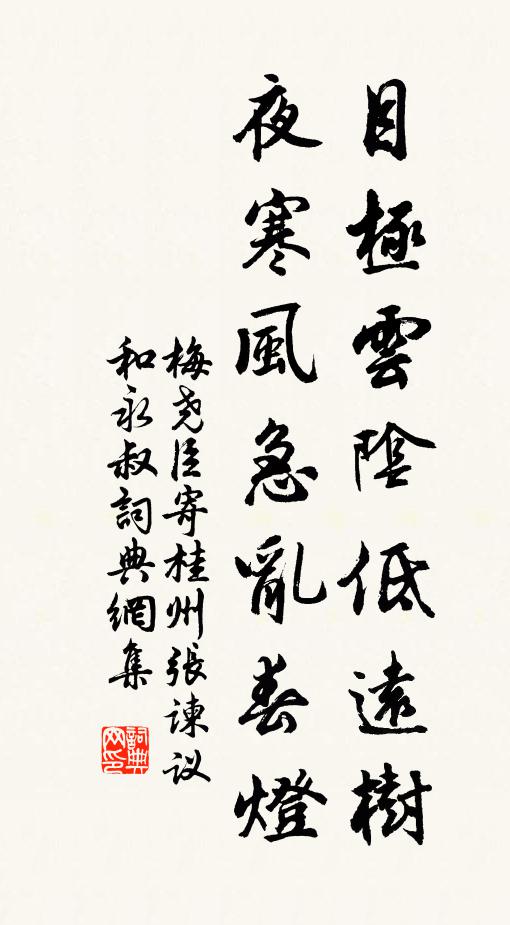 目極雲陰低遠樹
夜寒風急亂春燈
梅尧臣寄桂州張諫议
和永叔詞典網集
詞典网印